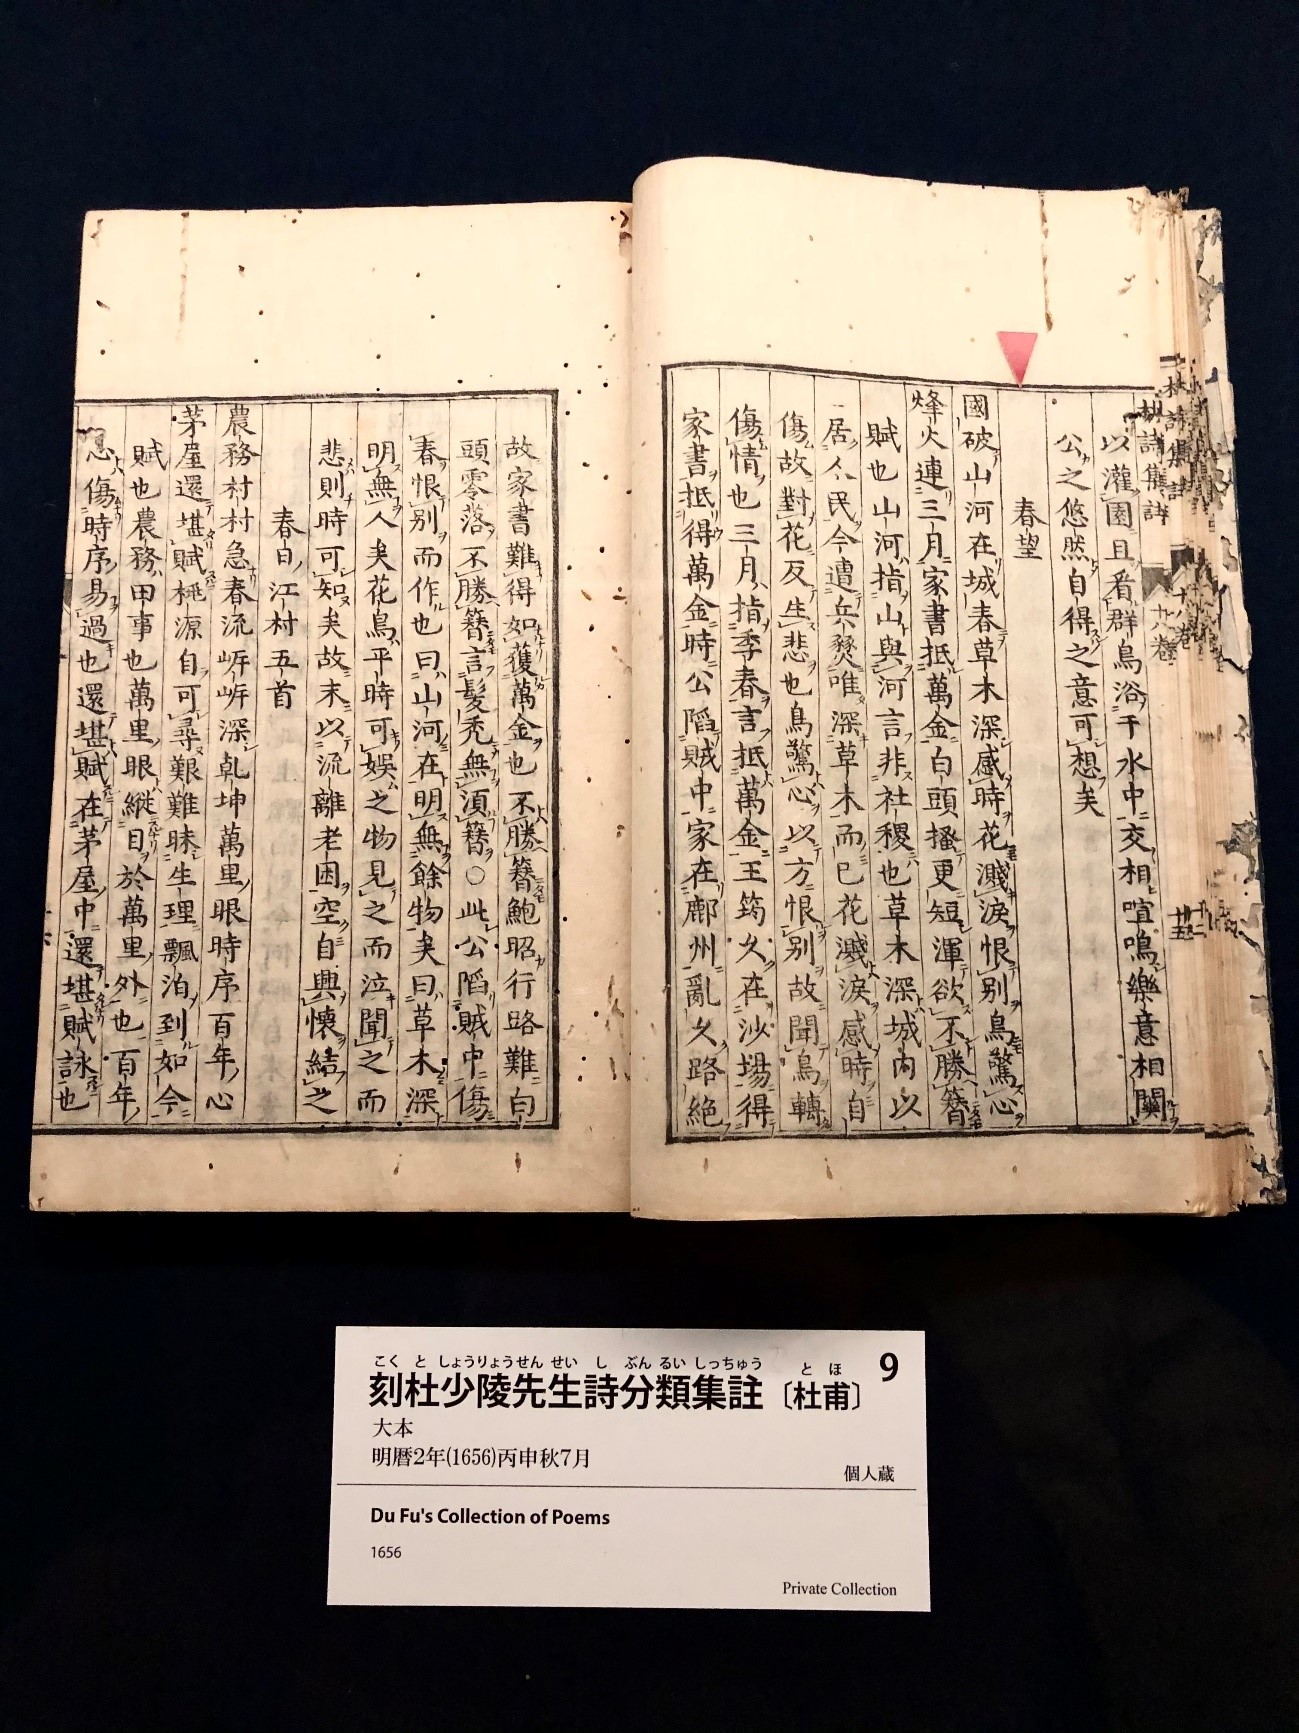 以灌園且看群鳥浴于水中交相喧鳴樂意相關
公之悠然自得之意可想矣
春望
國破山河在城春草木深感時花濺淚恨別鳥驚心
烽火連三月家書抵萬金白頭搔更短渾欲不勝簪
賦也山河指山與河言非社稷也草木深城内以
居人民今遭兵燹唯深草木而已花濺淚感時自
傷故對花反生悲也鳥驚心以方恨別故聞鳥轉
傷情也三月指季春言抵萬金王筠久在沙場得
家書抵得萬金時公䧟賊中家在鄜州亂久路絶
故家書難得如獲萬金也不勝簪鮑昭行路難白
頭零落不勝簪言髪秃無須簪〇此公䧟賊中傷
春恨別而作也曰山河在明無餘物矣曰草木深
明無人矣花鳥平時可娯之物見之而泣聞之而
悲則時可知矣故末以流離老困空自興懷結之
春日江村五首
農務村村急春流岸岸深乾坤萬里眼時序百年心
茅屋還堪賦桃源自可尋艱難昧生理飄泊到如今
賦也農務田事也萬里眼縱目於萬里外也百年
傷時序易過也還堪賦在茅屋中還堪賦詠也
杜詩集註
十八卷
刻杜少陵先生詩分類集註〔杜甫〕 9
こく と しょうりょうせん せい し ぶん るい しっちゅう と ほ
大本
明暦2年(1656)丙申秋7月
個人蔵
Du Fu's Collection of Poems
1656
Private Collection